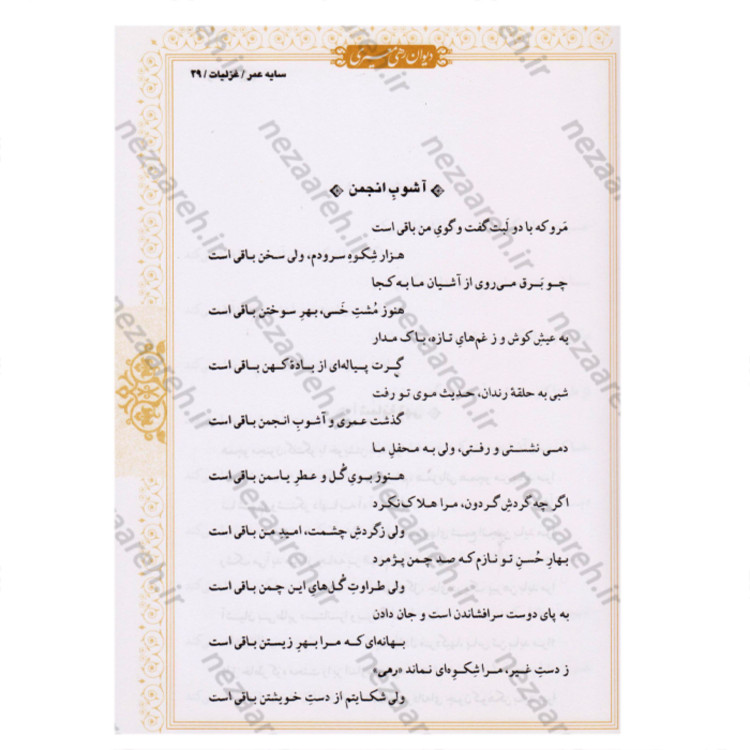 دیوان رهی معیری
سایه عمر / غزلیات / ۲۹
آشوبِ انجمن
مَرو که با دو لَبت گفت و گویِ من باقی است
هزار شِکوه سرودم، ولی سخن باقی است
چو بَرق می‌روی از آشیان ما به کجا
هنوز مُشتِ خَسی، بهرِ سوختن باقی است
به عیش کوش و ز غم‌هایِ تازه، باک مدار
گَرت پیاله‌ای از بادهٔ کهن باقی است
شبی به حلقهٔ رندان، حدیث موی تو رفت
گذشت عمری و آشوبِ انجمن باقی است
دمی نشستی و رفتی، ولی به محفلِ ما
هنوز بویِ گُل و عطرِ یاسمن باقی است
اگر چه گردشِ گردون، مرا هلاک نکرد
ولی زگردشِ چشمت، امیدِ من باقی است
بهارِ حُسنِ تو نازم که صد چمن پژمرد
ولی طراوتِ گُل‌هایِ این چمن باقی است
به پای دوست سرافشاندن است و جان دادن
بهانه‌ای که مرا بهرِ زیستن باقی است
ز دستِ غیر، مرا شِکوِه‌ای نماند «رهی»
ولی شکایتم از دستِ خویشتن باقی است
nezaareh.ir